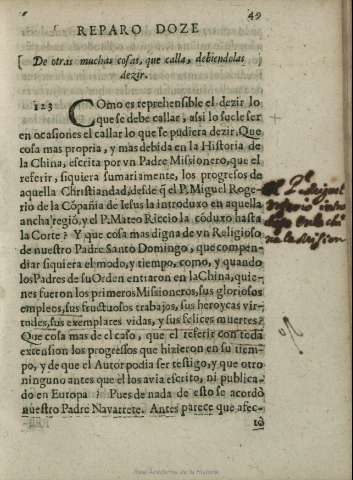 49
REPARO DOZE
De otras muchas cosas, que calla, debiendolas
dezir.
123 COmo es reprehensible el dezir lo
que se debe callar, asi lo suele ser
en ocasiones el callar lo que se pudiera dezir. Que
cosa mas propria, y mas debida en la Historia de
la China, escrita por vn Padre Missionero, que el
referir, siquiera sumariamente, los progresos de
aquella Christiandad, desde q̃ el P. Miguel Roge-
rio de la Cõpañia de Iesus la introduxo en aquella
ancha regiõ, y el P. Mateo Riccio la cõduxo hasta
la Corte? Y que cosa mas digna de vn Religioso
de nuestro Padre Santo Domingo, que compen-
diar siquiera el modo, y tiempo, como, y quando
los Padres de su Orden entraron en la China, quie-
nes fueron los primeros Missioneros, sus gloriosos
empleos, sus fructuosos trabajos, sus heroycas vir-
tudes, sus exemplares vidas, y sus felices muertes?
Que cosa mas de el caso, que el referir con toda
extension los progressos que hizieron en su tiem-
po, y de que el Autor podia ser testigo, y que otro
ninguno antes que èl los avia escrito, ni publica-
do en Europa? Pues de nada de esto se acordò
nuestro Padre Navarrete. Antes parece que afec-
tò
el P.e Miguel
Rogerio intro
en la chi
na la Mission
Real Academia de la Historia